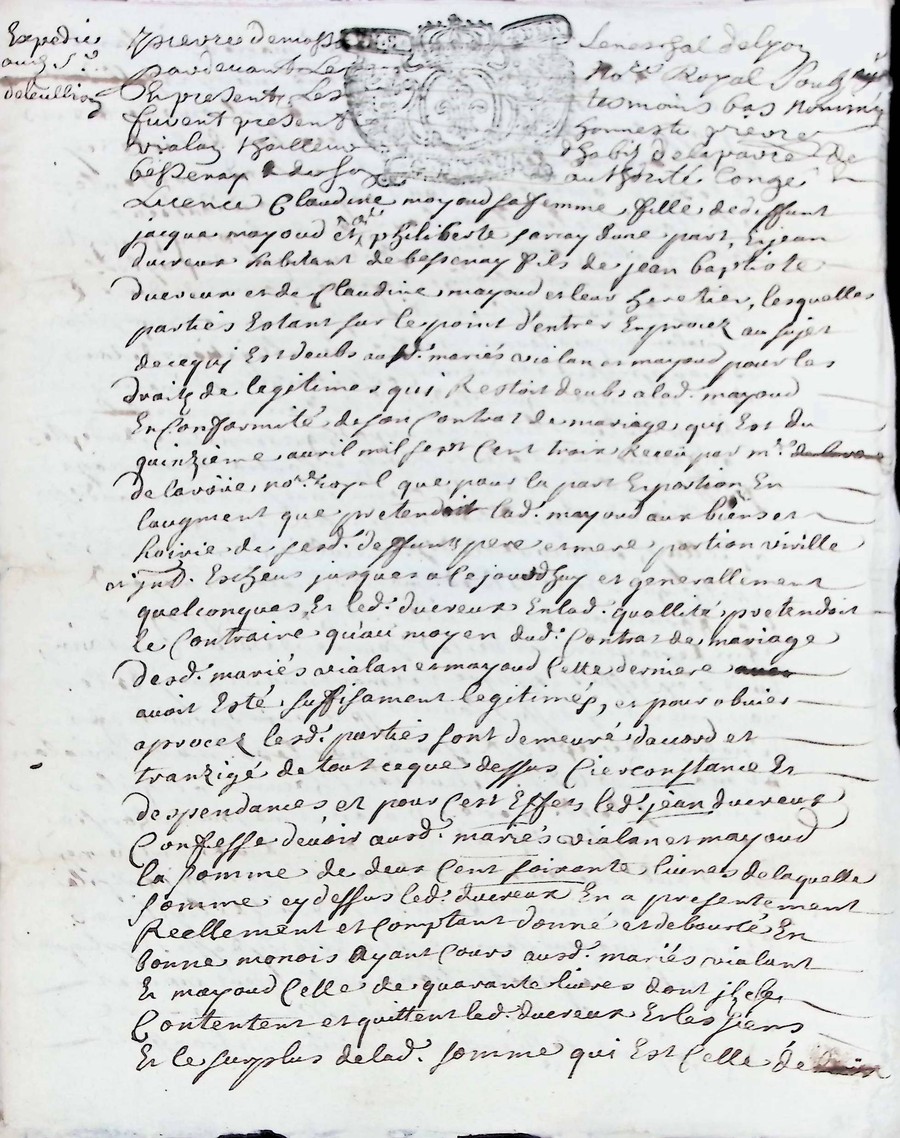 Expedié
au s.r
pierre de
Seneschal de lyon
pardevant Le
No.re Royal Soub.né
En presence Les
tesmoins bas Nommés
furent present
honneste pierre
vialan tailleur
habit. de la parre de
bessenay & de son
authorité Congé
Licence Claudine mayoud sa femme, fille de deffunt
jacque mayoud et philiberte sarray dune part, Et jean
ducreux habitant de bessenay fils de jean baptiste
ducreux et de Claudine mayoud et leur heretier, lesquelles
parties Estant sur le point d'entrer En procez au sujet
de ce qui Est deub ausd. mariés vialan et mayoud pour les
droits de legitimes qui Restoit deubs a lad. mayoud
En Conformité de son Contrat de mariage qui Est du
quinzieme auril mil sept Cent trois Receu par m.e
de lavoüe no.re royal que pour la part Et portion En
laugment que pretendoit lad. mayoud aux biens et
hoirie de sesd. deffunts pere et mere portion virille
Escheus jusques a ce jourdhuy et generallement
quelconques, Et led. ducreux En lad. quallité pretendoit
le Contraire qu'au moyen dud. Contrat de mariage
desd. mariés vialan et mayoud Cette derniere
avoit Esté suffisament legitimés, et pour obuier
a procez lesd. parties sont demeuré dacord et
tranzigé de tout ce que dessus Cierconstance Et
despendances et pour Cest Effets led. jean ducreux
Confesse deuoir ausd. mariés vialan et mayoud
la somme de deux Cent soixante liures de laquelle
somme cy dessus led. ducreux En a presentement
Reellement et Comptant donné et debourcé En
bonne monois ayant Cours ausd. mariés vialant
Et mayoud Celle de quarante liures dont
Contentent et quittent led. ducreux Et les siens
Et le surplus de lad. somme qui Est Celle de